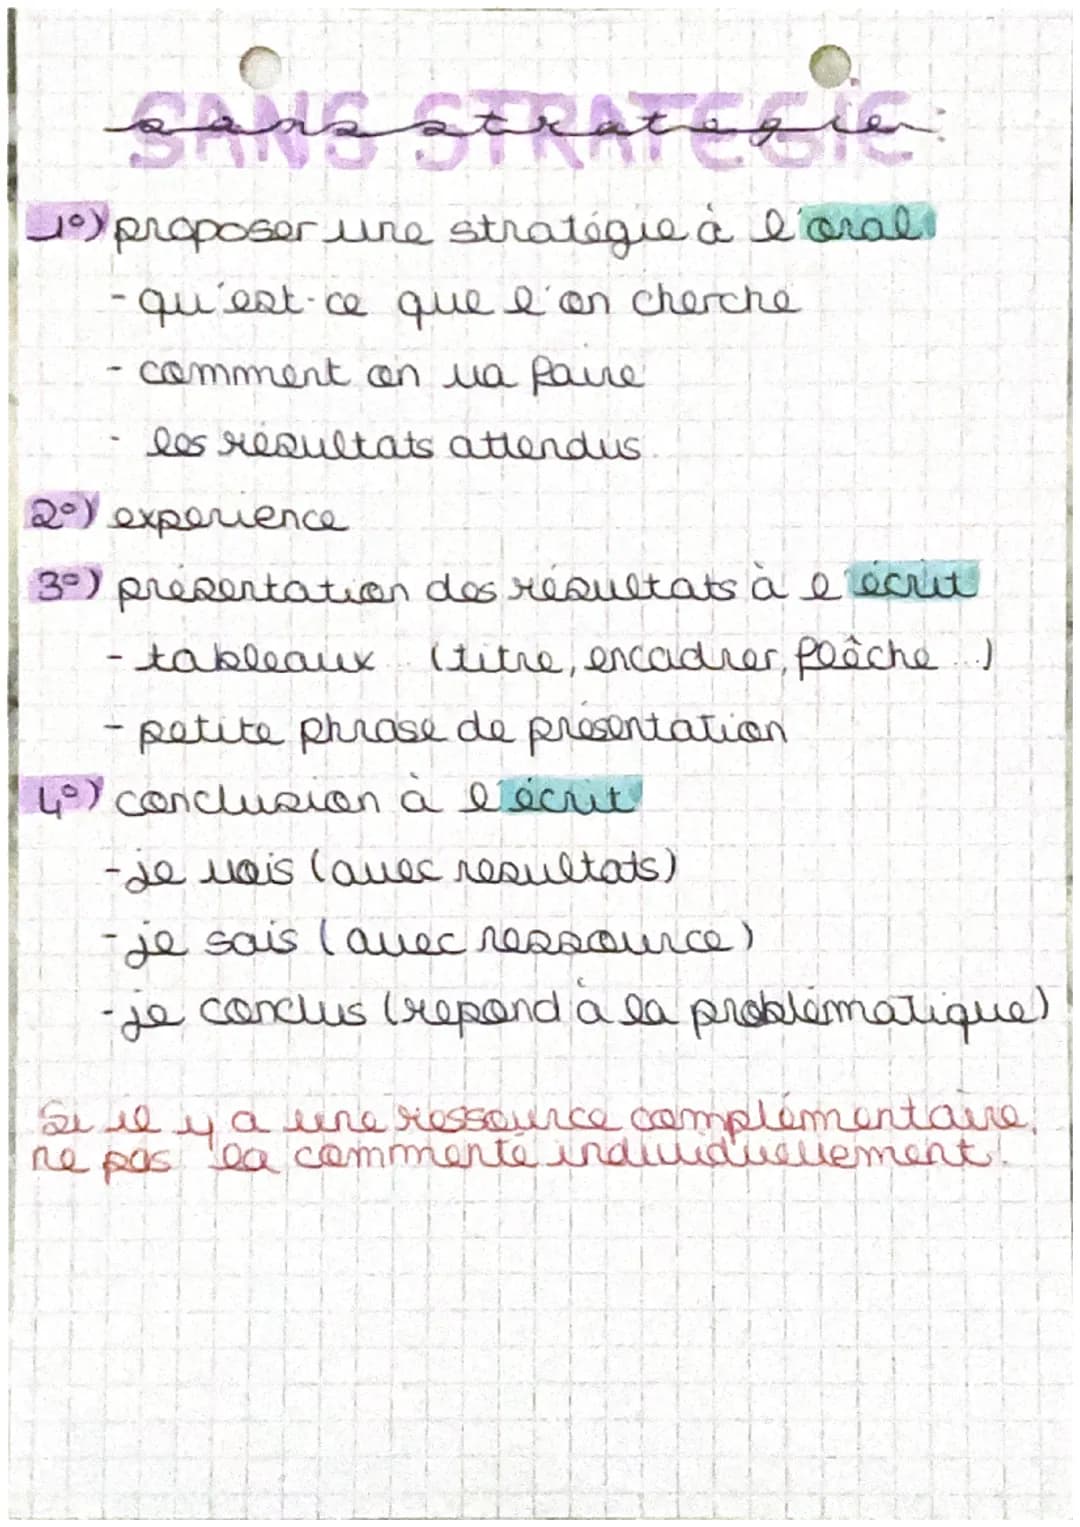 SANS STRATEGIE
sans stratégie:
1°) proposer une stratégie à l'oral
- qu'est-ce que l'on cherche
- comment on va faire
- les résultats attendus.
2°) experience
3°) présentation des résultats à l'écrit
- tableaux (titre, encadrer, flèche...)
- petite phrase de présentation
4°) conclusion à l'écrit
- je vois (avec resultats)
- je sais (avec ressource)
- je conclus (repond à la problématique)
Si il y a une ressource complémentaire,
ne pas la commenté individuellement.